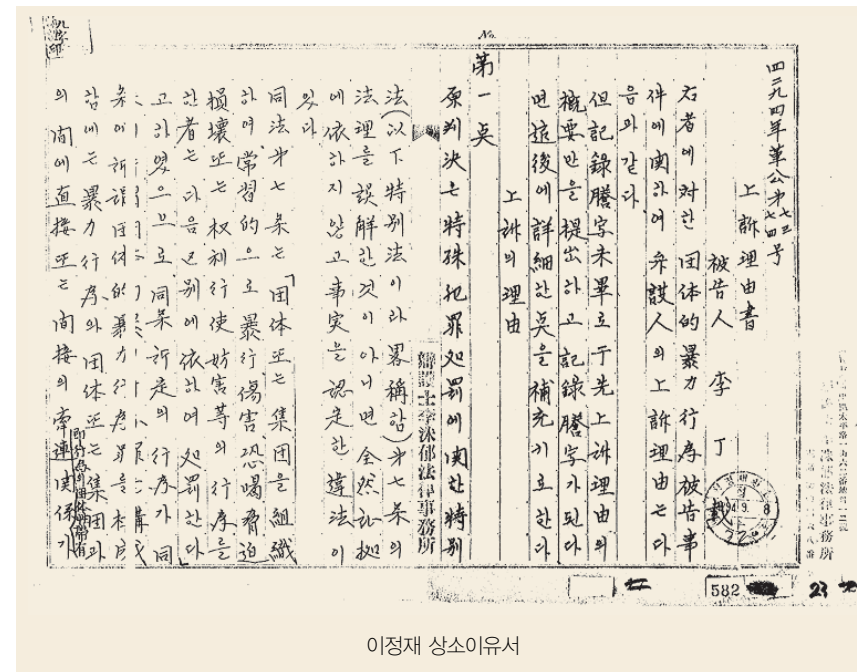 四二九四年革公第七三七四号
上訴理由書
被告人 李丁載
右者에 対한 団体的暴力行為被告事
件에 関하여 弁護人의 上訴理由는 다
음과 같다
但 記錄謄字未畢로 于先 上訴理由의
概要만을 提出하고 記錄謄字가 된다
면 追後에 詳細한 点을 補充키로 한다
上訴의 理由
第一点
原判決은 特殊犯罪処罰에 関한 特別
法(以下 特別法이라 畧稱함)第七条의
法理를 誤解한 것이 아니면 全然 証拠
에 依하지 않고 事実을 認定한 違法이
있다
同法 第七条는 「団体 또는 集団을 組織
하여 常習的으로 暴行 傷害 恐喝 脅迫
損壊 또는 权利行使妨害 等의 行為를
한 者는 다음 区別에 依하여 処罰한다」
고 하였으므로 同条 所定의 行為가 同
条에 所謂 団体的 暴力行為罪를
함에는 暴力行為와 団体 또는 集団과
의 間에 直接 또는 間接의 牽連関係가
辯護士李洙郁法律事務所
582
23
No.
이정재 상소이유서